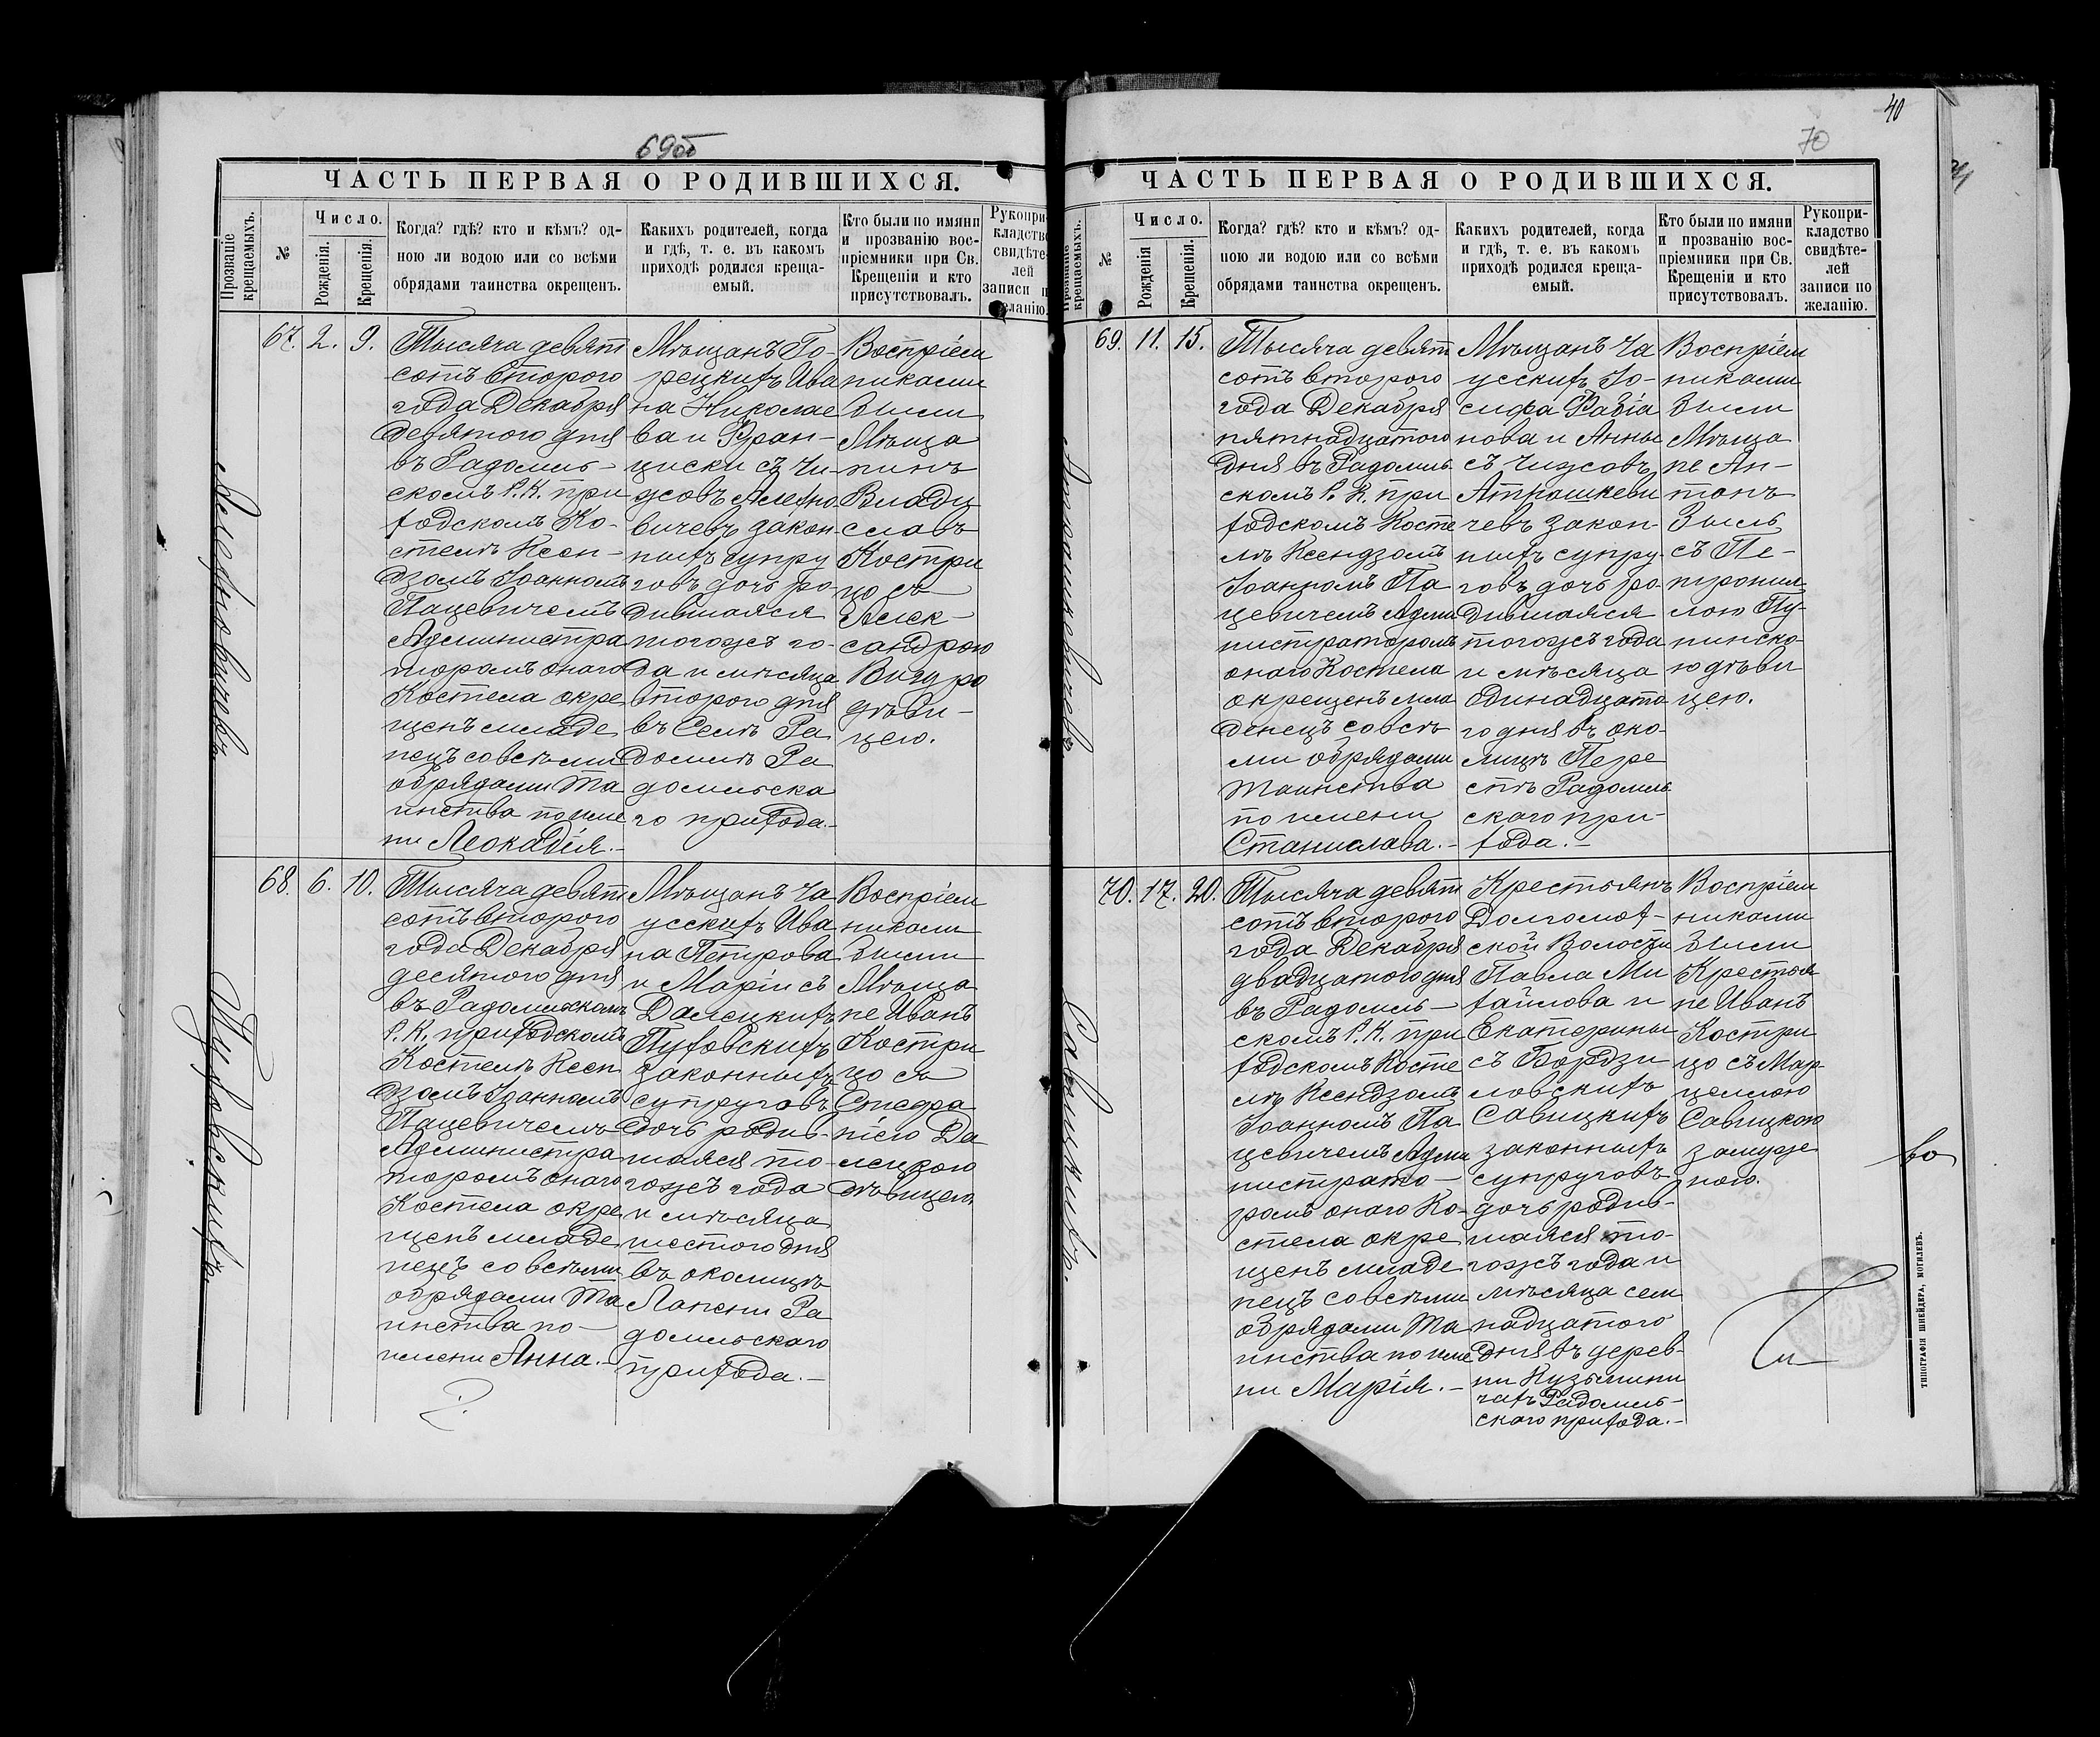 69об
ЧАСТЬ ПЕРВАЯ О РОДИВШИХСЯ.
Прозваніе крещаемыхъ.
№
Число.
Рожденія.
Крещенія.
Когда? гдѣ? кто и кѣмъ? од-
ною ли водою или со всѣми
обрядами таинства окрещенъ.
Какихъ родителей, когда
и гдѣ, т. е. въ какомъ
приходѣ родился креща-
емый.
Кто были по имяни
и прозванію вос-
пріемники при Св.
Крещеніи и кто
присутствовалъ.
Рукопри-
кладство
свидѣте-
лей
записи
желанію.
67. 2. 9.
Тысяча девят
сотъ второго
года Декабря
девятого дня
въ Радомль-
скомъ Р. К. при
ходскомъ Ко-
стелѣ Ксен-
дзомъ Іоанномъ
Пацевичемъ
Администра
торомъ онаго
Костела окре
щенъ младе
нецъ со всѣми
обрядами Та
инства по име
ни Леокадія.-
Мѣщанъ Го-
рецкихъ Ива
на Николае
ва и Фран-
циски съ Чи-
жовъ
вичевъ закон-
ныхъ супру
говъ дочь ро
дившаяся
тогожъ го-
да и мѣсяца
второго дня
въ Селѣ Ра
домлѣ Ра
домльска
го прихода.-
Воспріем
никами
были
Мѣща
нинъ
Влади
славъ
Костри
цо съ
Алек-
сандрою
дѣви-
цею.
68. 6. 10.
Тысяча девят
сотъ второго
года Декабря
десятого дня
въ Радомльскомъ
Р. К. приходскомъ
Костелѣ Ксен
дзомъ Іоанномъ
Пацевичемъ
Администра
торомъ онаго
Костела окре
щенъ младе
нецъ со всѣми
обрядами Та
инства по-
имени Анна.-
Мѣщанъ Ча
усскихъ Ива
на Петрова
и Маріи съ
Далецкихъ
Пуховскихъ
законныхъ
супруговъ
дочь родив-
шаяся то-
гожъ года
и мѣсяца
шестого дня
въ околицѣ
Лапени Ра
домльскаго
прихода.-
Воспріем
никами
были
Мѣща
не Иванъ
Костри
цо съ
Стефа
ніею Да
лецкою
дѣвицею.
Пуховскихъ.
40
70
ЧАСТЬ ПЕРВАЯ О РОДИВШИХСЯ.
Прозваніе крещаемыхъ.
№
Число.
Рожденія
Крещенія.
Когда? гдѣ? кто и кѣмъ? од-
ною ли водою или со всѣми
обрядами таинства окрещенъ.
Какихъ родителей, когда
и гдѣ, т. е. въ какомъ
приходѣ родился креща-
емый.
Кто были по имяни
и прозванію вос-
пріемники при Св.
Крещеніи и кто
присутствовалъ.
Рукопри-
кладство
свидѣте-
лей
записи по
желанію.
69. 11. 15.
Тысяча девят
сотъ второго
года Декабря
пятнадцатого
дня въ Радомль
скомъ Р. К. при
ходскомъ Косте
лѣ Ксендзомъ
Іоанномъ Па
цевичемъ Адми
нистраторомъ
онаго Костела
окрещенъ мла
денецъ со всѣ
ми обрядами
Таинства
по имени
Станислава.-
Мѣщанъ Ча
усскихъ Іо-
сифа Фабіа
нова и Анны
съ Чижовъ
Атрошкеви
чевъ закон-
ныхъ супру-
говъ дочь ро
дившаяся
тогожъ года
и мѣсяца
одинадцата
го дня въ око-
лицѣ Пере
стѣ Радомль
скаго при-
хода.-
Воспріем
никами
были
Мѣща
не Ан-
тонъ
съ Пе-
тронил
лою Пу-
пинско
ю дѣви
цею.
Атрошкевичевъ.
70. 17. 20.
Тысяча девят
сотъ второго
года Декабря
двадцатого дня
въ Радомль-
скомъ Р. К. при
ходскомъ Косте
лѣ Ксендзомъ
Іоанномъ Па
цевичемъ Адми
нистрато-
ромъ онаго Ко-
стела окре
щенъ младе
нецъ со всѣми
обрядами Та
инства по име
ни Марія.-
Крестьянъ
Долгомох-
ской Волости
Павла Ми
хайлова и
Екатерины
съ Бордзи
ловскихъ
Савицкихъ
законныхъ
супруговъ
дочь родив-
шаяся то-
гожъ года и
мѣсяца сем
надцатого
дня въ дерев-
ни Кузьмини
чахъ Радомль-
скаго прихода.-
Воспріем
никами
были
Крестья
не Иванъ
Костри
цо съ Мар
целлою
Савицкою
замуж
ною.
Савицкихъ.
во
ТИПОГРАФІЯ ШНЕЙДЕРА, МОГИЛЕВЪ.